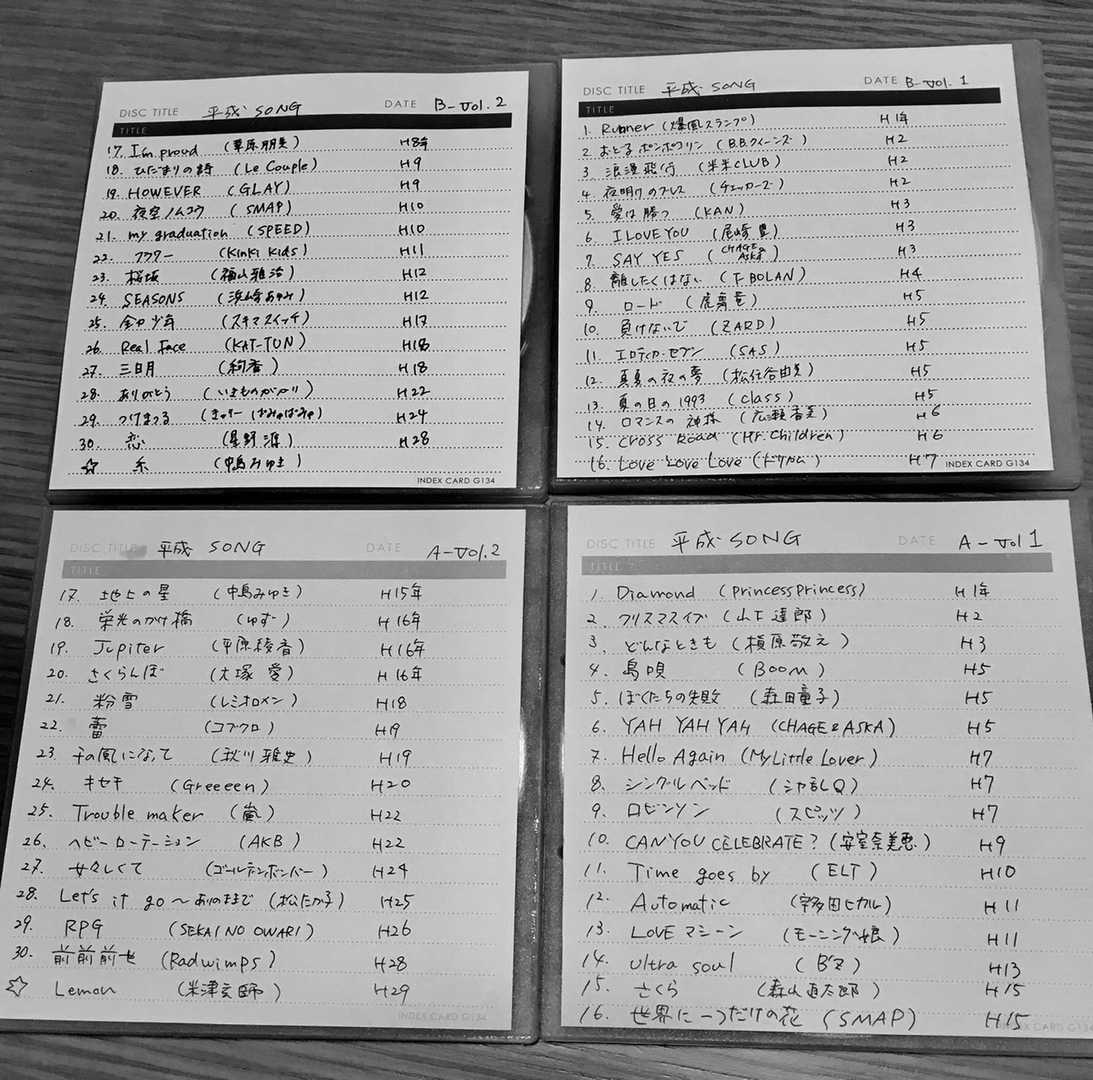 DISC TITLE 平成 SONG DATE B-Vol.2
TITLE
17. I'm proud (華原朋美) H8年
18. ひだまりの詩 (Le Couple) H9
19. HOWEVER (GLAY) H9
20. 夜空ノムコウ (SMAP) H10
21. my graduation (SPEED) H10
22. フラワー (Kinki Kids) H11
23. 桜坂 (福山雅治) H12
24. SEASONS (浜崎あゆみ) H12
25. 全力少年 (スキマスイッチ) H17
26. Real Face (KAT-TUN) H18
27. 三日月 (絢香) H18
28. ありがとう (いきものがかり) H22
29. つけまつる (きゃりーぱみゅぱみゅ) H24
30. 恋 (星野源) H28
☆ 糸 (中島みゆき)
INDEX CARD G134
DISC TITLE 平成 SONG DATE B-Vol.1
TITLE
1. Runner (爆風スランプ) H1年
2. おどるポンポコリン (B.B.クィーンズ) H2
3. 浪漫飛行 (米米CLUB) H2
4. 夜明けのブレス (チェッカーズ) H2
5. 愛は勝つ (KAN) H3
6. I LOVE YOU (尾崎豊) H3
7. SAY YES (CHAGE & ASKA) H3
8. 離したくはない (T-BOLAN) H4
9. ロード (虎舞竜) H5
10. 負けないで (ZARD) H5
11. エロティカ・セブン (SAS) H5
12. 真夏の夜の夢 (松任谷由実) H5
13. 夏の日の1993 (class) H5
14. ロマンスの神様 (広瀬香美) H6
15. Cross Road (Mr.Children) H6
16. Love Love Love (ドリカム) H7
INDEX CARD G134
DISC TITLE 平成 SONG DATE A-Vol.2
TITLE
17. 地上の星 (中島みゆき) H15年
18. 栄光のかけ橋 (ゆず) H16年
19. Jupiter (平原綾香) H16年
20. さくらんぼ (大塚愛) H16年
21. 粉雪 (レミオロメン) H18
22. 蕾 (コブクロ) H19
23. 千の風になって (秋川雅史) H19
24. キセキ (Greeeen) H20
25. Trouble maker (嵐) H22
26. ヘビーローテーション (AKB) H22
27. 女々しくて (ゴールデンボンバー) H24
28. Let's it go〜ありのままで (松たか子) H25
29. RPG (SEKAI NO OWARI) H26
30. 前前前世 (Radwimps) H28
☆ Lemon (米津玄師) H29
INDEX CARD G134
DISC TITLE 平成 SONG DATE A-Vol 1
TITLE
1. Diamond (PrincessPrincess) H1年
2. クリスマスイブ (山下達郎) H2
3. どんなときも (槇原敬之) H3
4. 島唄 (BOOM) H5
5. ぼくたちの失敗 (森田童子) H5
6. YAH YAH YAH (CHAGE&ASKA) H5
7. Hello Again (MyLittleLover) H7
8. シングルベッド (シャ乱Q) H7
9. ロビンソン (スピッツ) H7
10. CAN YOU CELEBRATE? (安室奈美恵) H9
11. Time goes by (ELT) H10
12. Automatic (宇多田ヒカル) H11
13. LOVEマシーン (モーニング娘) H11
14. ultra soul (B'z) H13
15. さくら (森山直太郎) H15
16. 世界に一つだけの花 (SMAP) H15
INDEX CARD G134